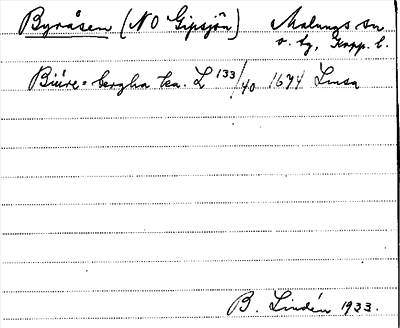 Byråsen (NO Gipsjön) Malungs sn
o. tg, Kopp. l.
Biúre=bergha ka. L 133/40 1674 Lmsa
B. Lindén 1933.